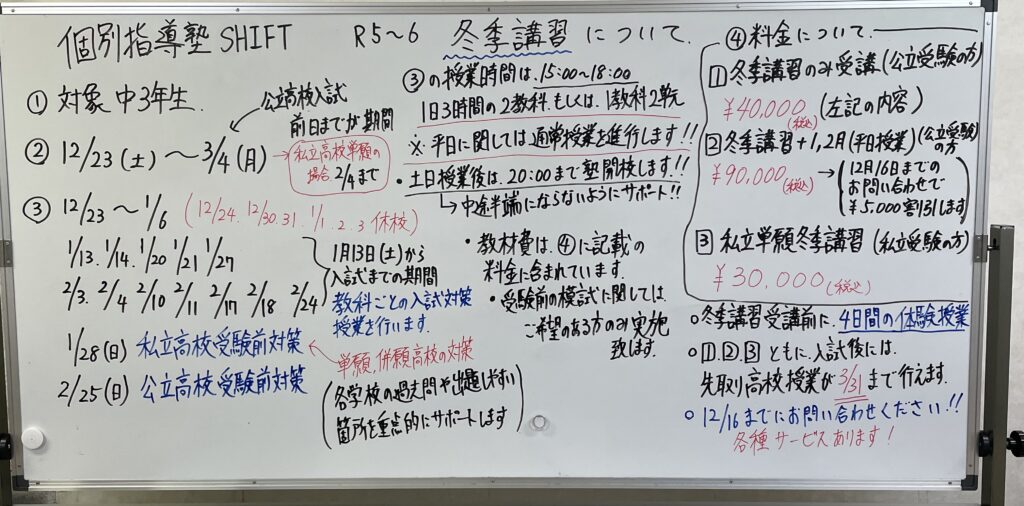 個別指導塾SHIFT R5～6 冬季講習について.
① 対象 中3年生.
公立高校入試
前日までが期間
② 12/23(土)～3/4(月)
→私立高校単願の
場合.2/4まで
③ 12/23～1/6 (12/24. 12/30.31. 1/1.2.3休校)
1/13. 1/14. 1/20 1/21 1/27
2/3. 2/4 2/10 2/11 2/17 2/18 2/24
1月13日(土)から
入試までの期間
教科ごとの入試対策
授業を行います.
1/28(日) 私立高校受験前対策
←単願,併願高校の対策
2/25(日) 公立高校受験前対策
(各学校の過去問や出題しやすい
箇所を重点的にサポートします)
③の授業時間は.15:00～18:00
1日3時間の2教科.もしくは.1教科2単元
※平日に関しては通常授業を進行します!!
・土日授業後は.20:00まで塾開校します!!
→中途半端にならないようにサポート!!
・教材費は.④に記載の
料金に含まれています.
・受験前の模試に関しては.
ご希望のある方のみ実施
致します.
④料金について.
1 冬季講習のみ受講(公立受験の方)
¥40,000(税込) (左記の内容)
2 冬季講習+1,2月(平日授業)(公立受験の方)
¥90,000(税込)→(12月16日までの
お問い合わせで
¥5.000割引します)
3 私立単願冬季講習(私立受験の方)
¥30,000(税込)
○冬季講習受講前に.4日間の体験授業
○1.2.3ともに.入試後には.
先取り高校授業が3/31まで行えます.
○12/16までにお問い合わせください!!
各種サービスあります!